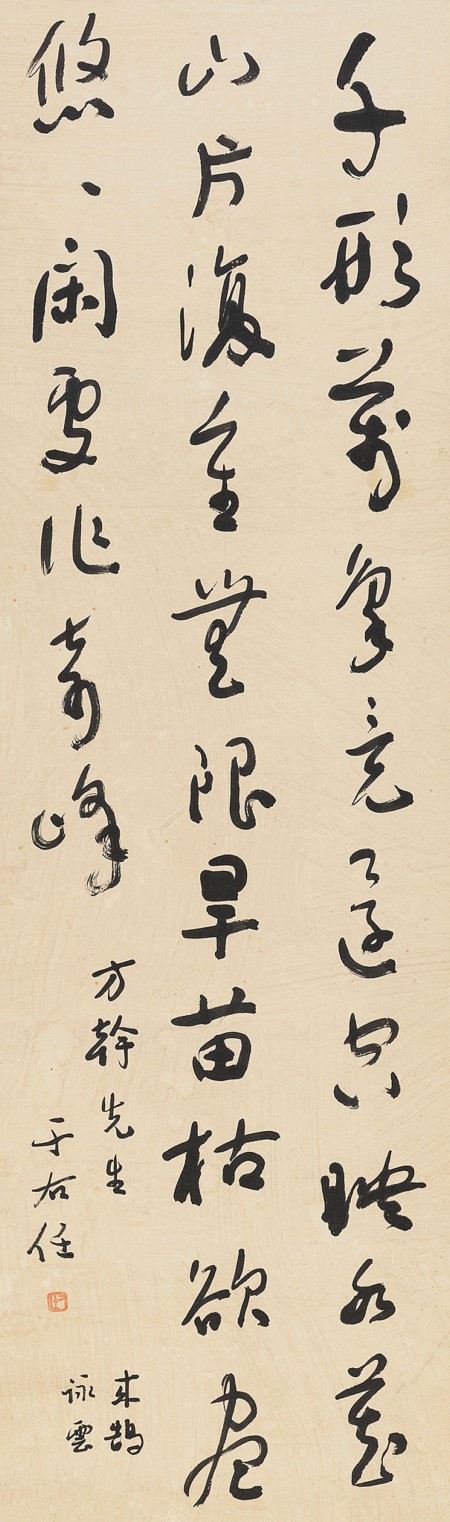 千形萬象竟還空映水藏
山片復重無限旱苗枯欲盡
悠、閑處作奇峰
方幹先生
于右任
來鵠
詠雲